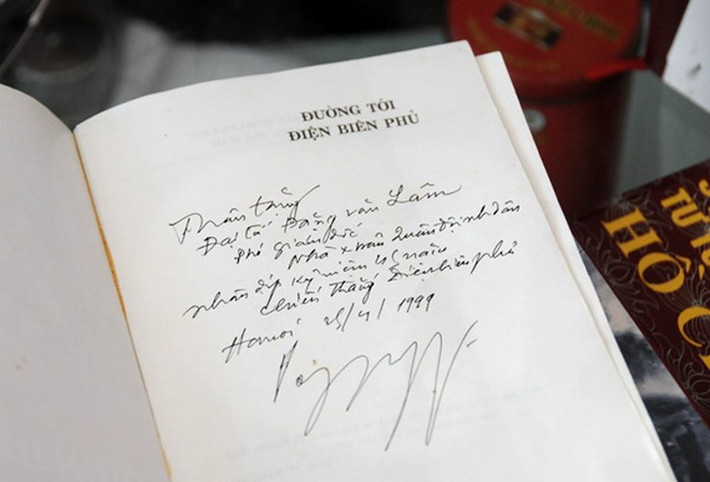 ĐƯỜNG TỚI
ĐIỆN BIÊN PHỦ
Thân tặng
Đại tá Đặng văn Lâm
Phó giám đốc
Nhà x bản Quân đội nh dân
nhân dịp kỷ niệm 45 năm
chiến thắng Điện biên phủ
Hanoi 25/4/1999
TỪ
HỒ C